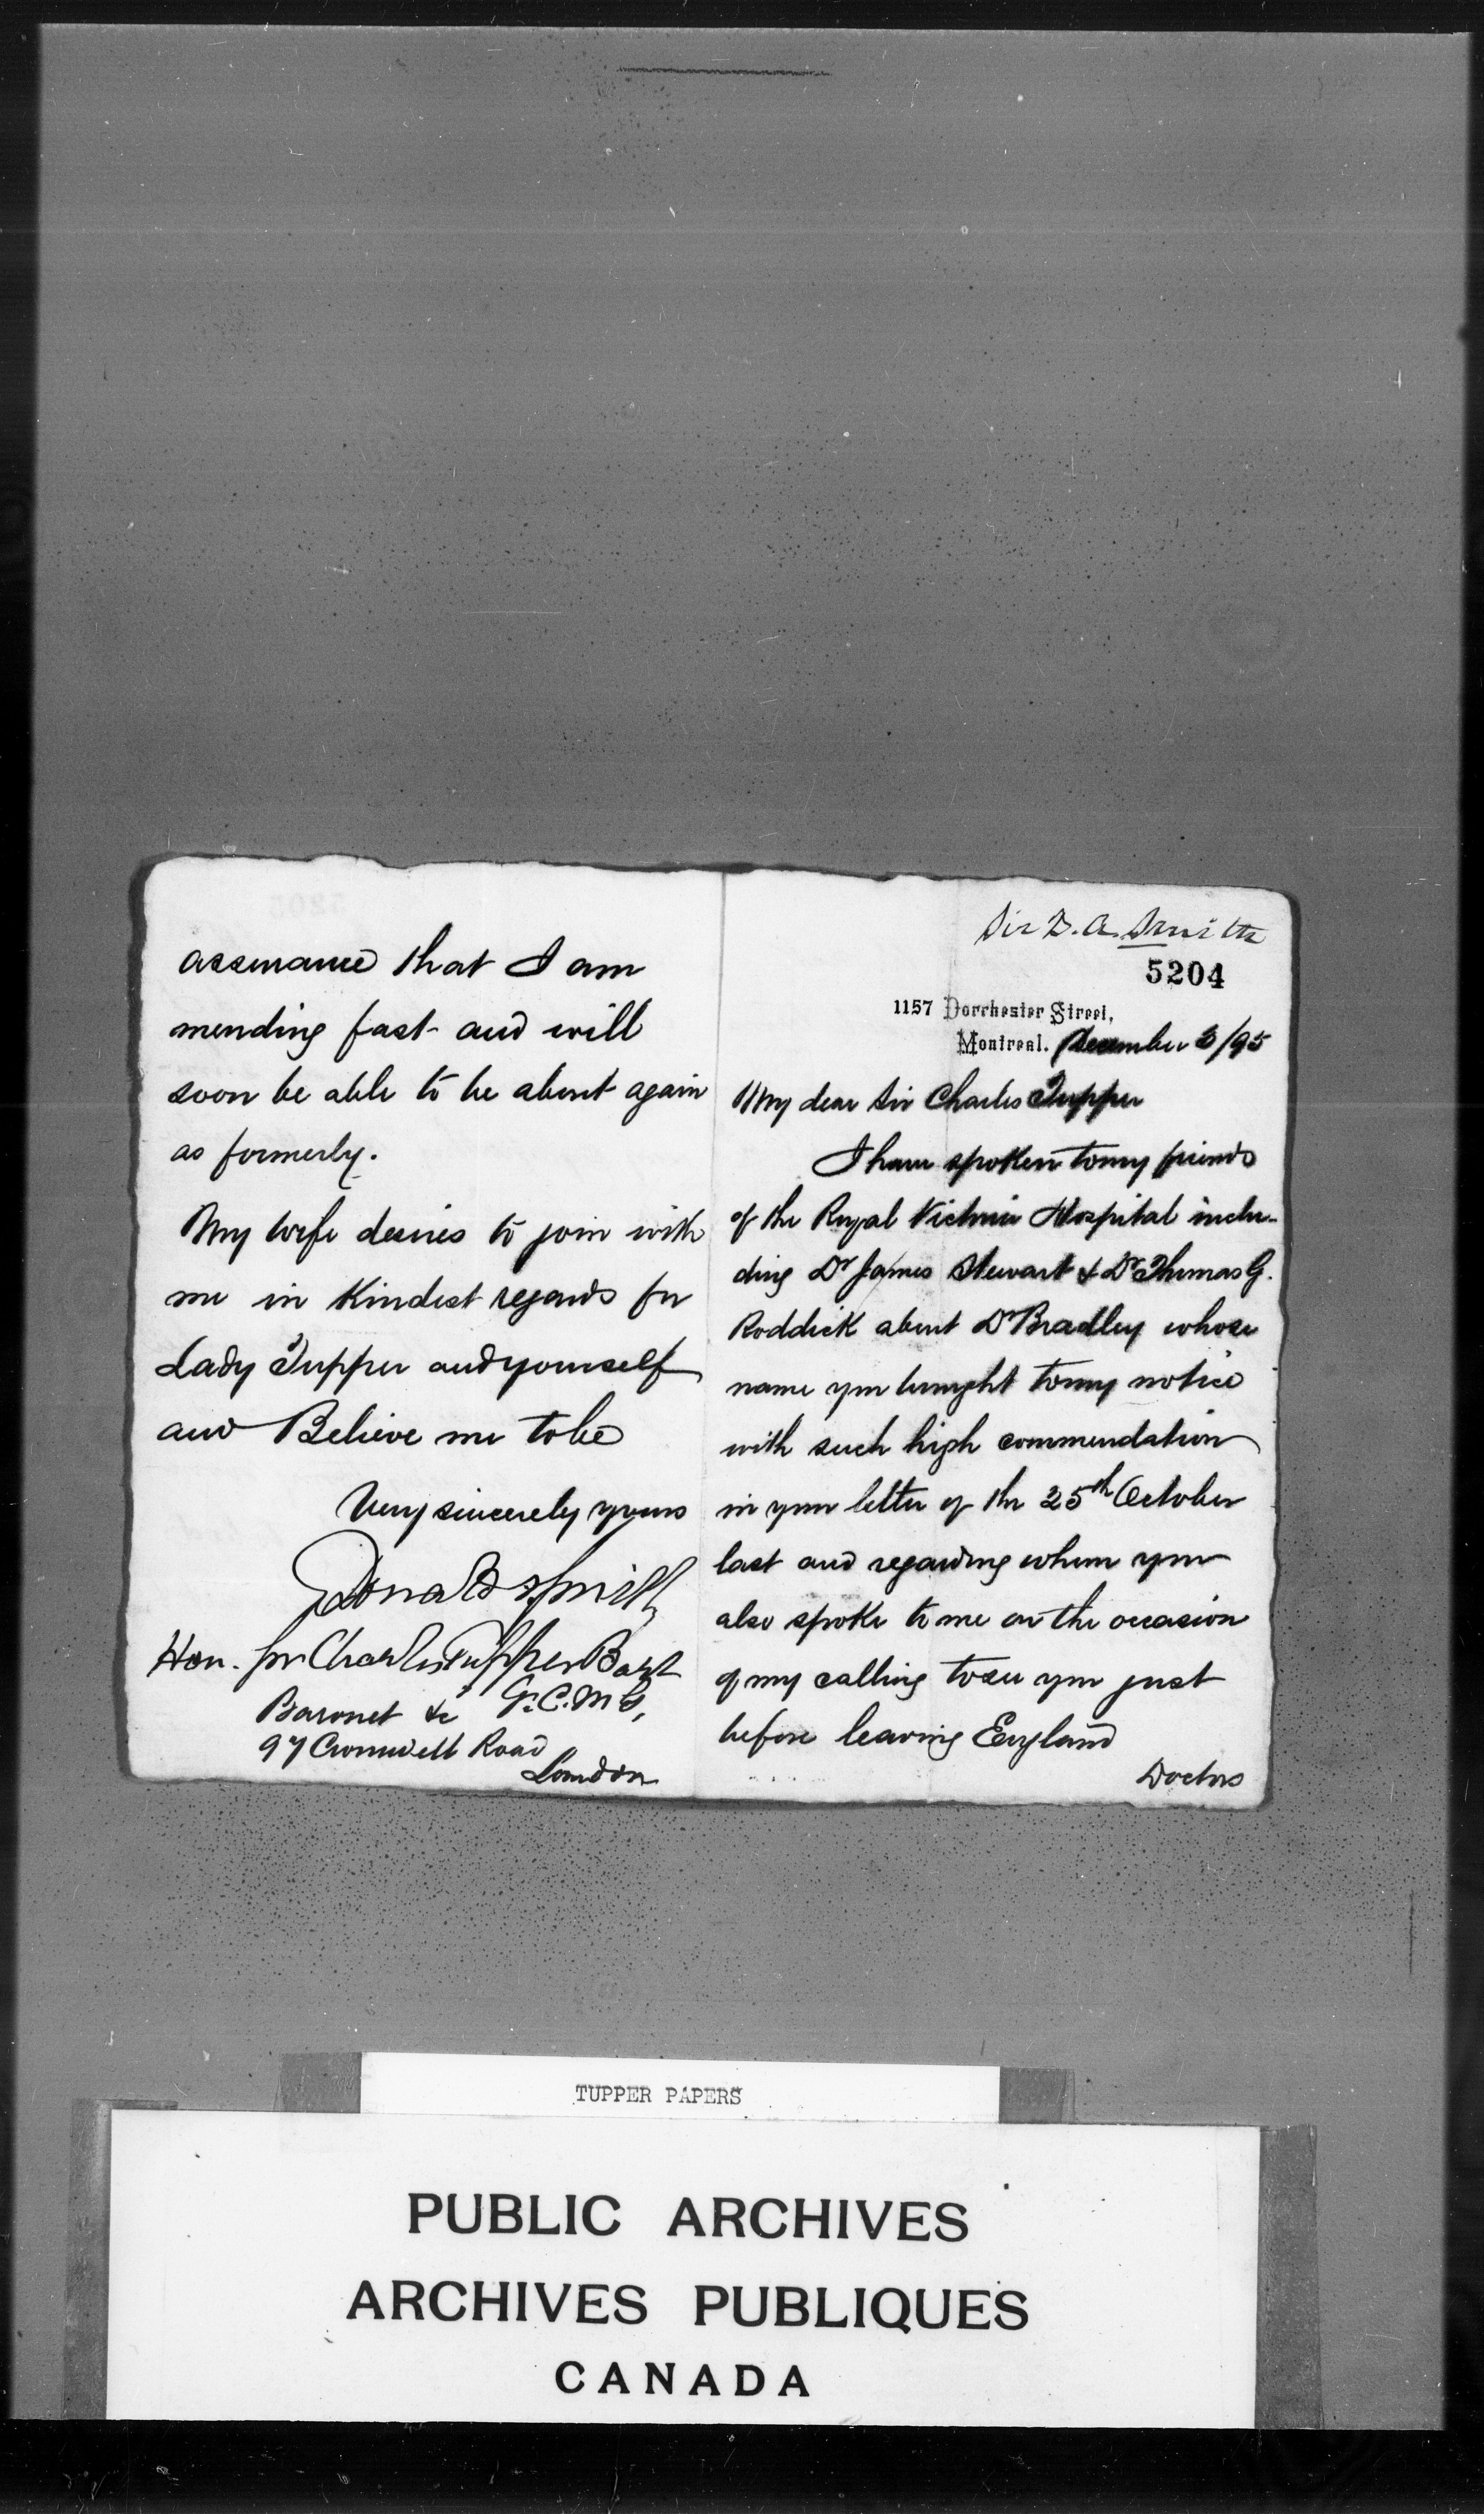 Sir D. A. Smith
5204
1157 Dorchester Street,
Montreal. December 3/95
My dear Sir Charles Tupper
I have spoken to my friends
of the Royal Victoria Hospital inclu-
ding Dr James Stewart & Dr Thomas G.
Roddick about Dr Bradley whose
name you brought to my notice
with such high commendation
in your letter of the 25th October
last and regarding whom you
also spoke to me on the occasion
of my calling to see you just
before leaving England
Doctors
assurance that I am
mending fast and will
soon be able to be about again
as formerly.
My wife desires to join with
me in kindest regards for
Lady Tupper and yourself
and Believe me to be
Very sincerely yours
Donald A Smith
Hon. Sir Charles Tupper Bart
Baronet &c G.C.M.G,
97 Cromwell Road
London
TUPPER PAPERS
PUBLIC ARCHIVES
ARCHIVES PUBLIQUES
CANADA